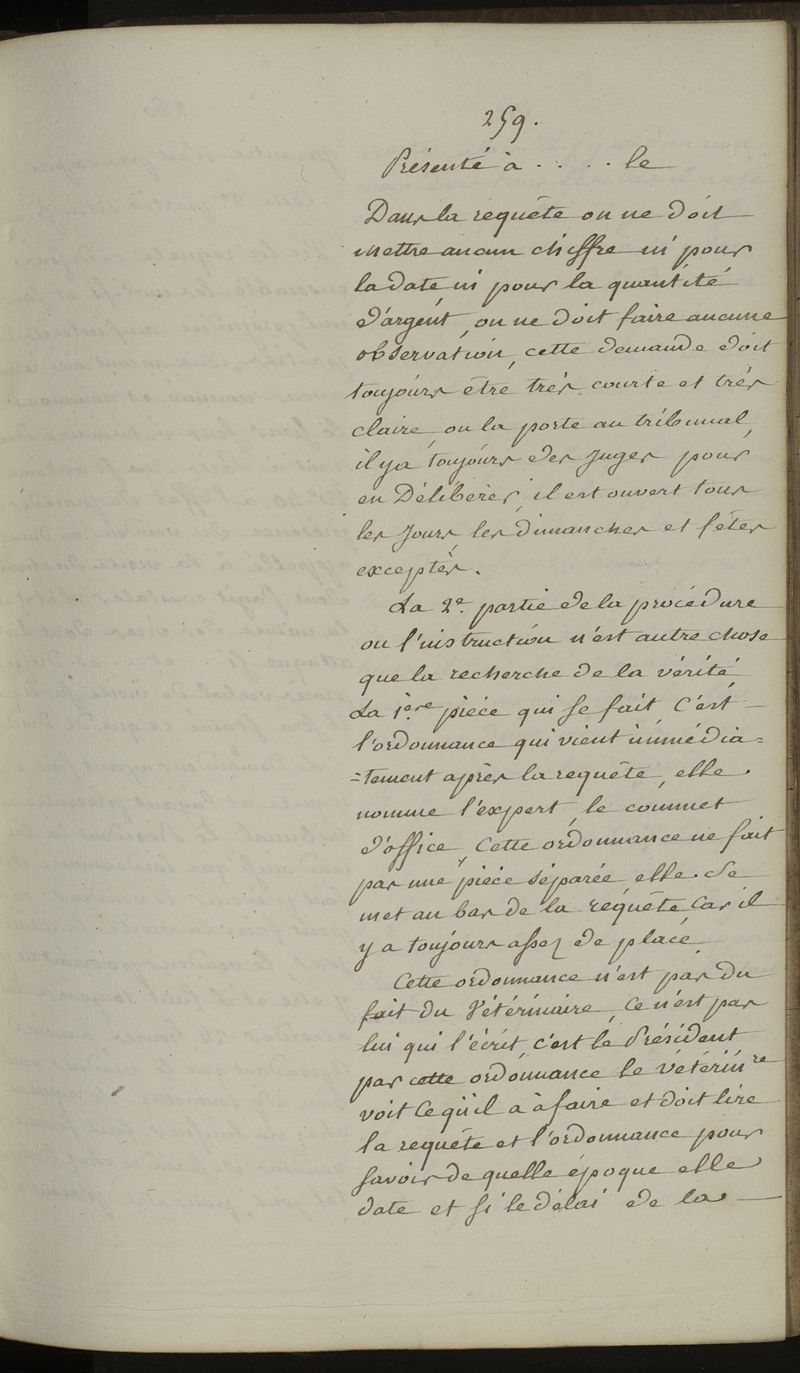 259.
Présenté à . . . . le
Dans la requête on ne doit
mettre aucun chiffre ni pour
la date ni pour la quantité
d'argent, on ne doit faire aucune
observation, cette demande doit
toujours être très courte et très
claire, on la porte au tribunal,
il y a toujours des juges pour
en Délibérer, il est ouvert tous
les Jours les dimanches et fêtes
exceptés.
La 2e. partie de la procédure
ou l'instruction n'est autre chose
que la recherche de la vérité,
La 1ère pièce qui se fait, C'est
l'ordonnance qui vient immédia=
=tement après la requête, elle
nomme l'expert, le commet
d'office, Cette ordonnance ne fait
pas une pièce séparée elle se
met au bas de la requête Car il
y a toujours assez de place,
Cette ordonnance n'est pas du
fait du Vétérinaire, Ce n'est pas
lui qui l'écrit c'est le Président
par cette ordonnance le vétérinre
voit Ce qu'il a à faire et doit lire
la requête et l'ordonnance pour
savoir de quelle époque elle
date et si le délai de la